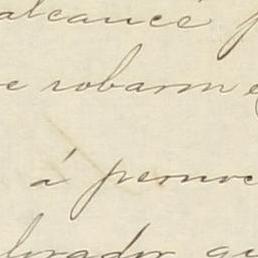 alcancé
e robarme
á pernoc
brador qu